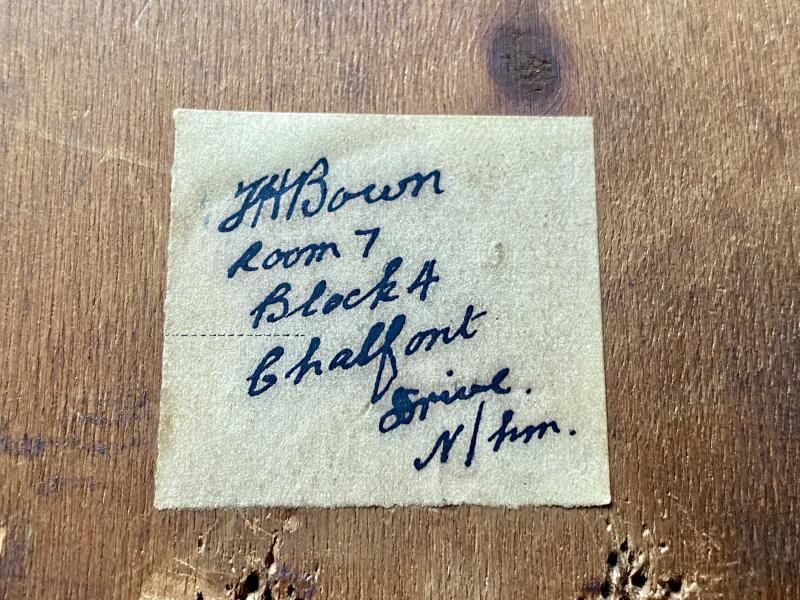 JHBown
Room 7
Block 4
Chalfont
Drive.
N/hm.